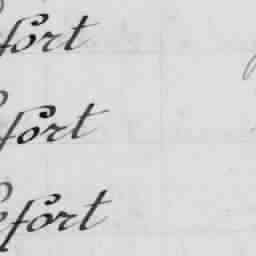 fort
fort
efort